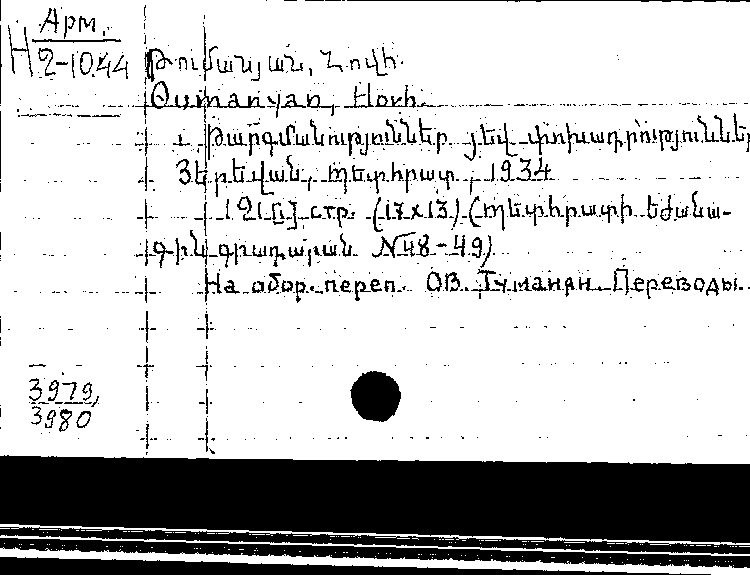 Арм.
Н 2-1044
Թումանյան, Հովհ.
Θumanyan, Hovh.
Թարգմանություններ յեվ փոխադրություննե,
Յերեվան, Պետհրատ, 1934
121 [1] стр. (17x13) (Պետհրատի եժանա-
գին գրադարան N 48-49)
На обор. переп. ОВ. Туманян. Переводы.
3979,
3980